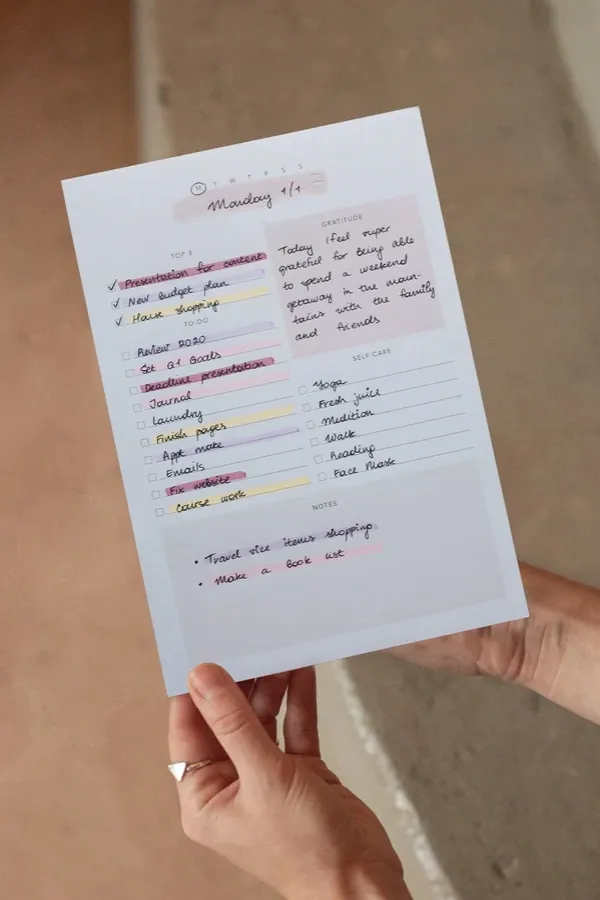 M T W T F S S
Monday 1/1
TOP 3
Presentation for content
New budget plan
House shopping
TO DO
Review 2020
Set Q1 Goals
Deadline presentation
Journal
Laundry
Finish pages
Appt make
Emails
Fix website
Course work
GRATITUDE
Today I feel super
grateful for being able
to spend a weekend
getaway in the moun-
tains with the family
and friends
SELF CARE
Yoga
Fresh juice
Medition
Walk
Reading
Face Mask
NOTES
• Travel size items shopping
• Make a book list